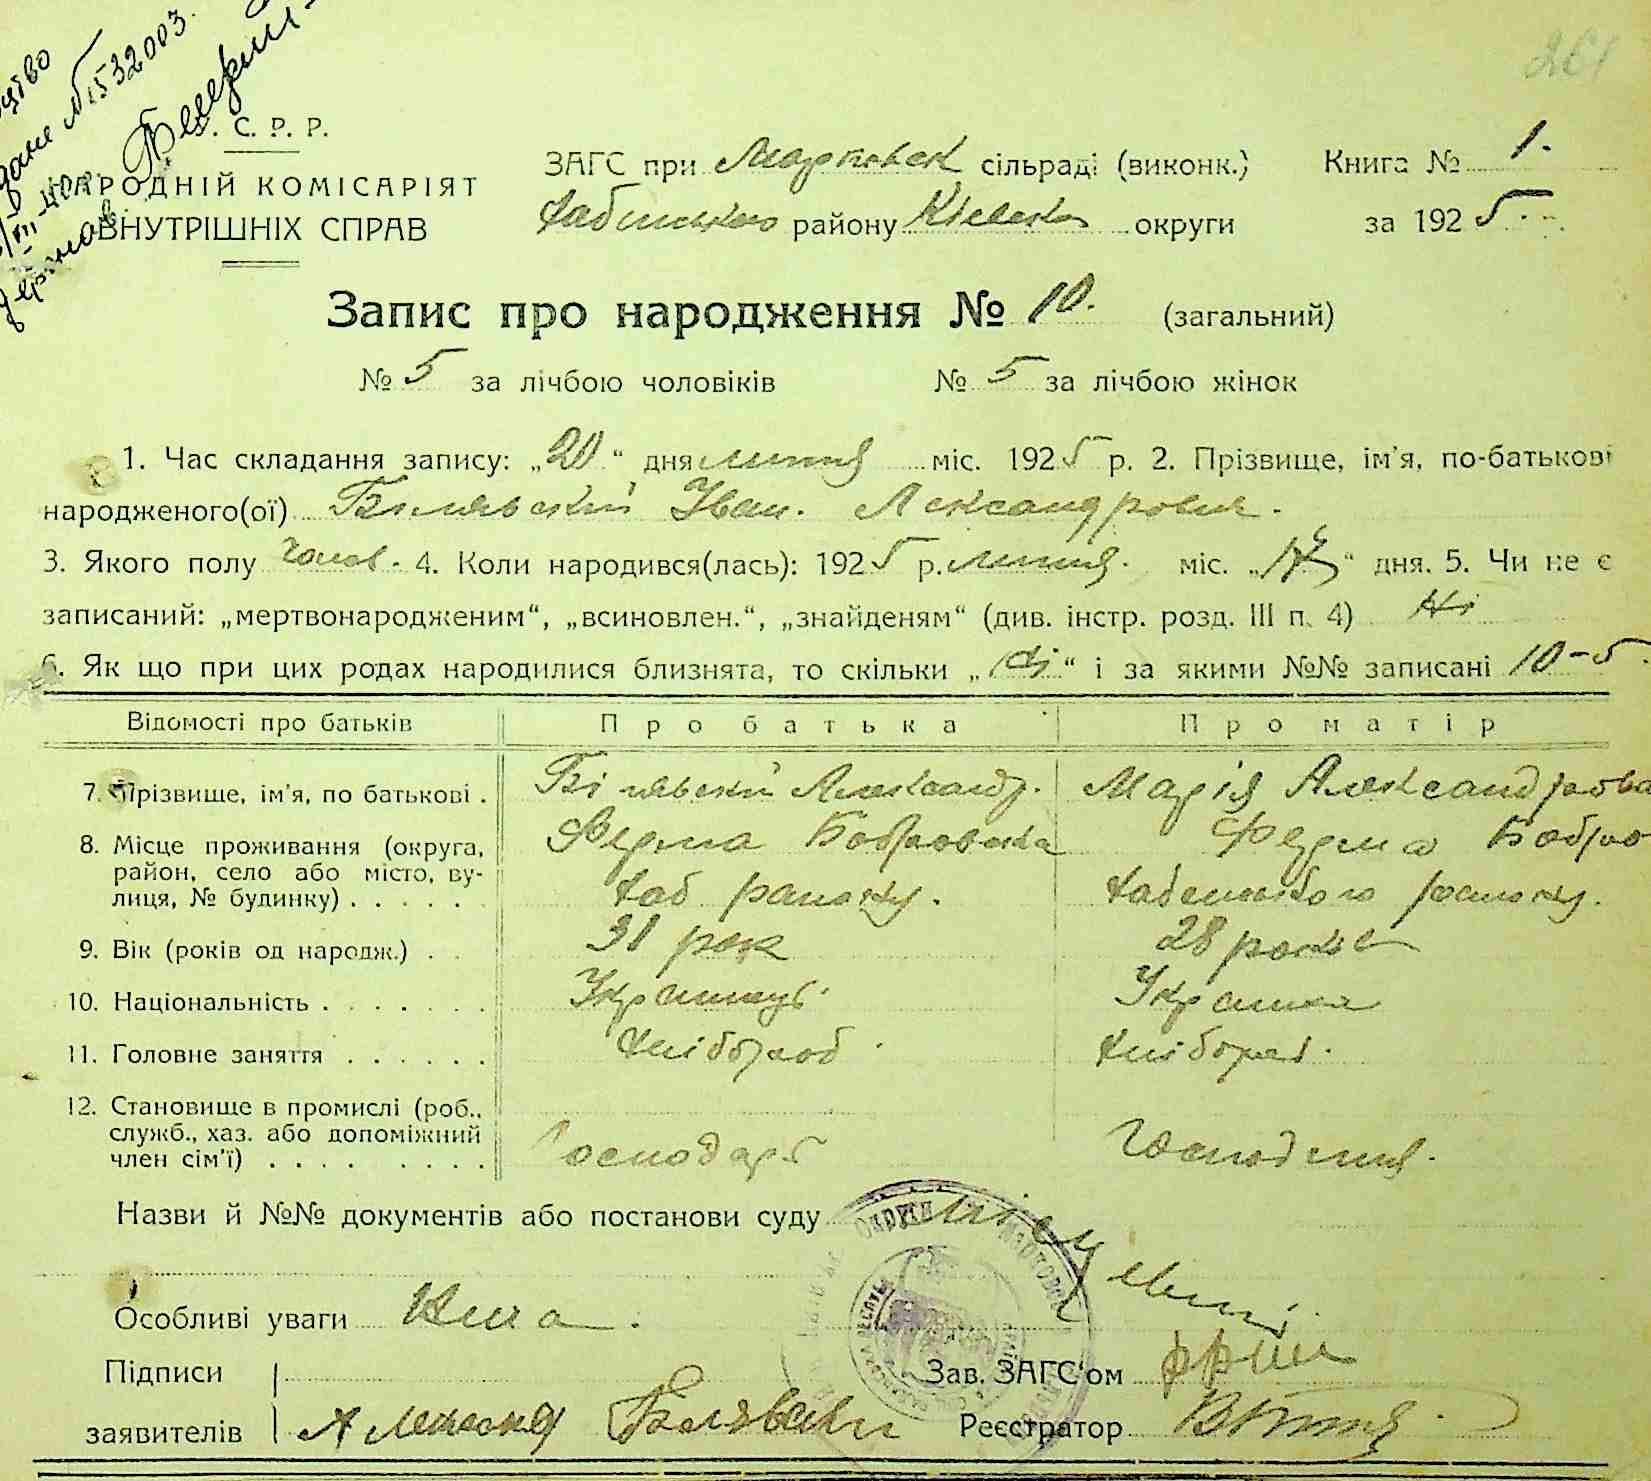 №1532003.
261
С. Р. Р.
НАРОДНІЙ КОМІСАРІЯТ
ВНУТРІШНІХ СПРАВ
ЗАГС при сільраді (виконк.) Книга № 1.
району Київськ округи за 1925
Запис про народження № 10. (загальний)
№ 5 за лічбою чоловіків № 5 за лічбою жінок
1. Час складання запису: „20“ дня липня міс. 1925 р. 2. Прізвище, ім'я, по-батькові
народженого(ої) Білявский Іван. Александрович.
3. Якого полу чолов. 4. Коли народився(лась): 1925 р. липня. міс. „ “ дня. 5. Чи не є
записаний: „мертвонародженим“, „всиновлен.“, „знайденям“ (див. інстр. розд. III п. 4) Ні
6. Як що при цих родах народилися близнята, то скільки „Ні“ і за якими №№ записані 10-5
Відомості про батьків Про батька Про матір
7. Прізвище, ім'я, по батькові . Білявский Александр. Марія Александровна
8. Місце проживання (округа, Ферма Бобровська Ферма Бобро
район, село або місто, ву-
лиця, № будинку) . . . . . . Хаб району. району.
9. Вік (років од народж.) . . 31 рок 28 років
10. Національність . . . . . . . Украинець Украинка
11. Головне заняття . . . . . . Хлібороб Хлібороб.
12. Становище в промислі (роб.,
служб., хаз. або допоміжний
член сім'ї) . . . . . . . . Господарь Господиня.
Назви й №№ документів або постанови суду
Особливі уваги Нима.
Підписи Зав. ЗАГС'ом
заявителів Білявски Реєстратор